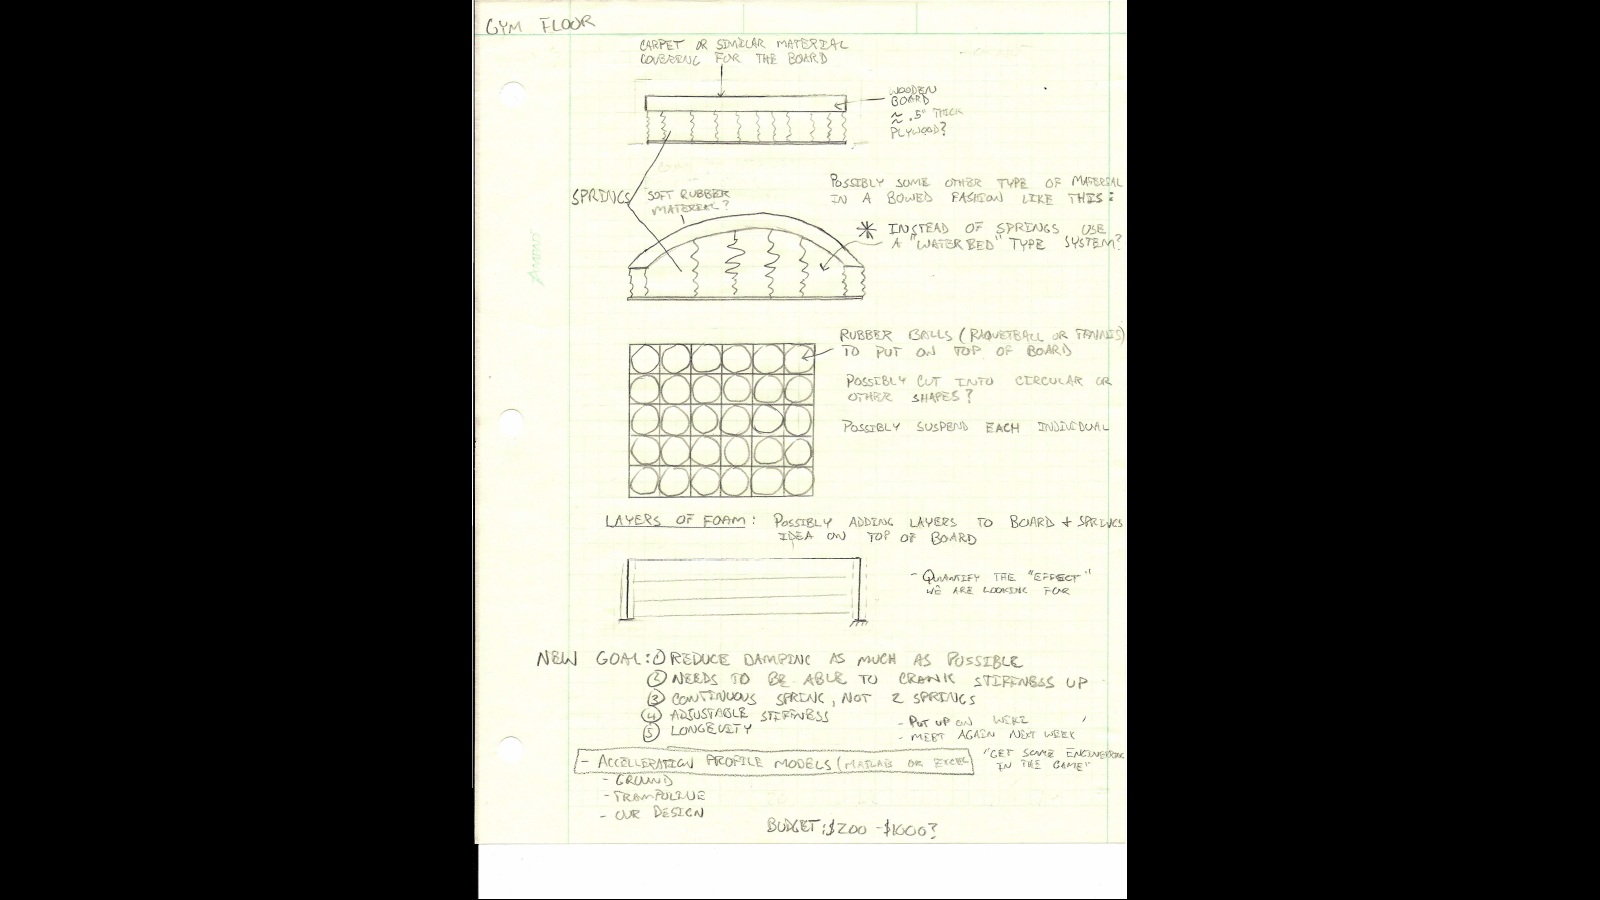 GYM FLOOR
CARPET OR SIMILAR MATERIAL
COVERING FOR THE BOARD
WOODEN
BOARD
≈ .5" THICK
PLYWOOD?
SPRINGS
SOFT RUBBER
MATERIAL?
POSSIBLY SOME OTHER TYPE OF MATERIAL
IN A BOWED FASHION LIKE THIS:
* INSTEAD OF SPRINGS USE
A "WATER BED" TYPE SYSTEM?
RUBBER BALLS (RAQUETBALL OR TENNIS)
TO PUT ON TOP OF BOARD
POSSIBLY CUT INTO CIRCULAR OR
OTHER SHAPES?
POSSIBLY SUSPEND EACH INDIVIDUAL
LAYERS OF FOAM: POSSIBLY ADDING LAYERS TO BOARD + SPRINGS
IDEA ON TOP OF BOARD
- QUANTIFY THE "EFFECT"
WE ARE LOOKING FOR
NEW GOAL: ① REDUCE DAMPING AS MUCH AS POSSIBLE
② NEEDS TO BE ABLE TO CRANK STIFFNESS UP
③ CONTINUOUS SPRING, NOT 2 SPRINGS
④ ADJUSTABLE STIFFNESS
⑤ LONGEVITY
- PUT UP ON WIKI
- MEET AGAIN NEXT WEEK
"GET SOME ENGINEERING
IN THE GAME"
- ACCELLERATION PROFILE MODELS (MATLAB OR EXCEL
- GROUND
- TRAMPOLINE
- OUR DESIGN
BUDGET: $200 - $1000?